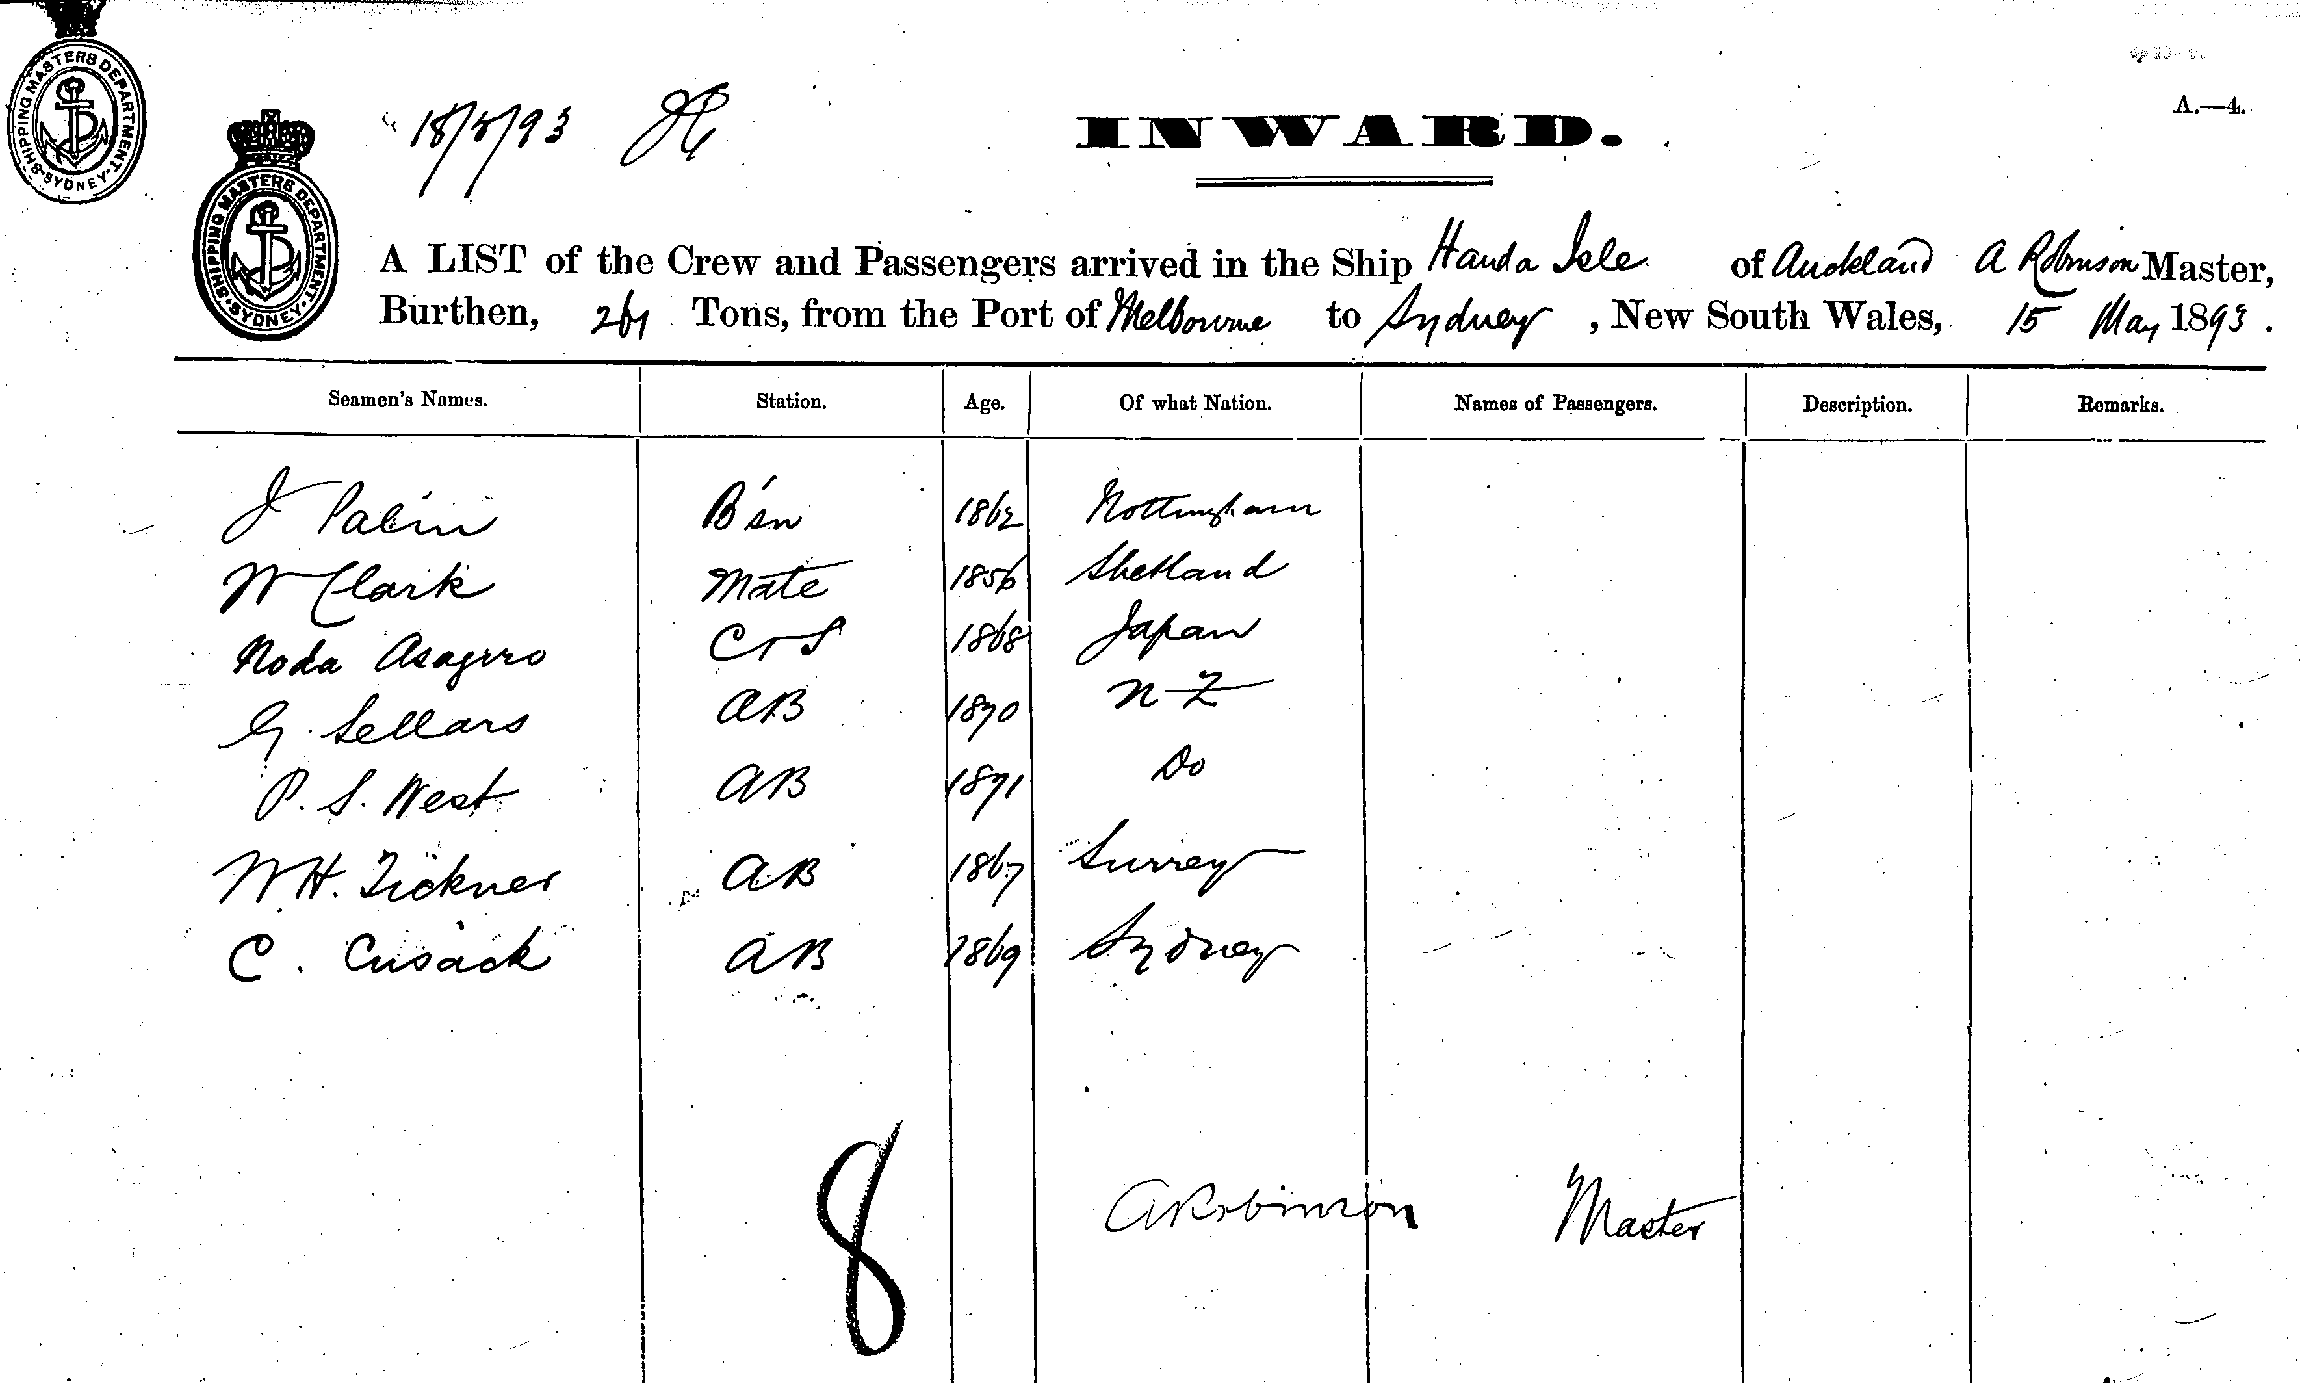 SHIPPING MASTERS DEPARTMENT · SYDNEY ·
SHIPPING MASTERS DEPARTMENT · SYDNEY ·
A.—4.
INWARD.
A LIST of the Crew and Passengers arrived in the Ship Handa Isle of Auckland A Robinson Master,
Burthen, 261 Tons, from the Port of Melbourne to Sydney, New South Wales, 15 May 1893.
Seamen's Names. Station. Age. Of what Nation. Names of Passengers. Description. Remarks.
J Palin B'sn 1862 Nottingham
W Clark Mate 1856 Shetland
Noda Asagiro C & S 1868 Japan
G. Sellars AB 1870 N Z
P. S. West AB 1871 Do
W. H. Tickner AB 1867 Surrey
C. Cusack AB 1869 Sydney
8
A Robinson Master